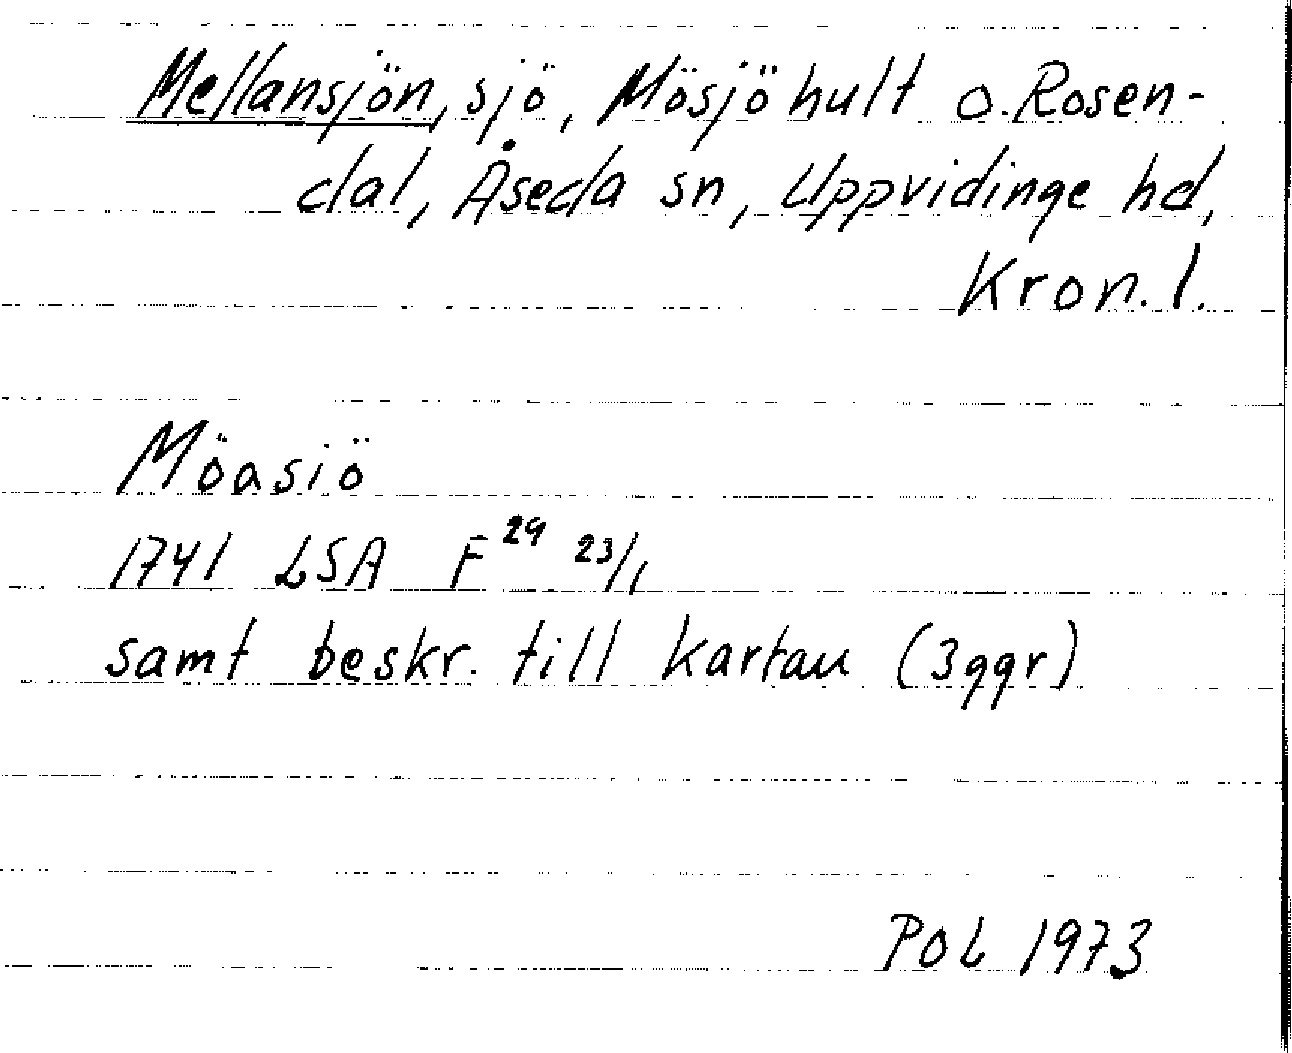 Mellansjön, sjö, Mösjöhult o. Rosen-
dal, Åseda sn, Uppvidinge hd,
Kron. l.
Möasiö
1741 LSA F 29 23/1
samt beskr. till kartan (3ggr)
POL 1973